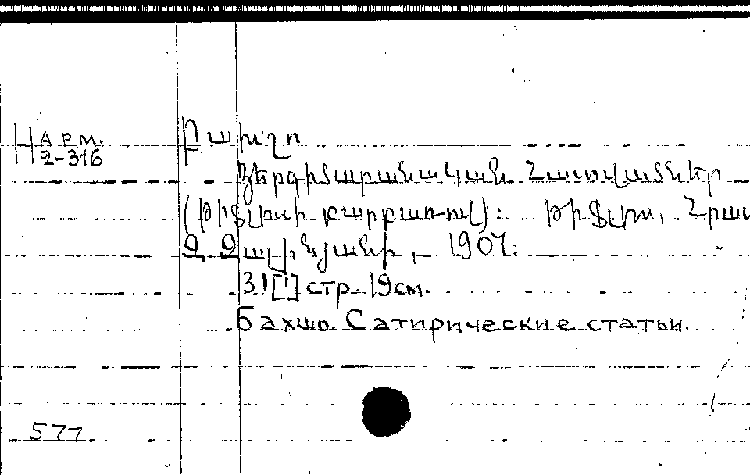 Арм. Բախշո
2-316
Երգիծաբանական Հատվածներ
(Թիֆլիսի բարբառով): Թիֆլիս, Հրատ
1907:
31[1] стр. 19см.
Бахшо Сатирические статьи.
577